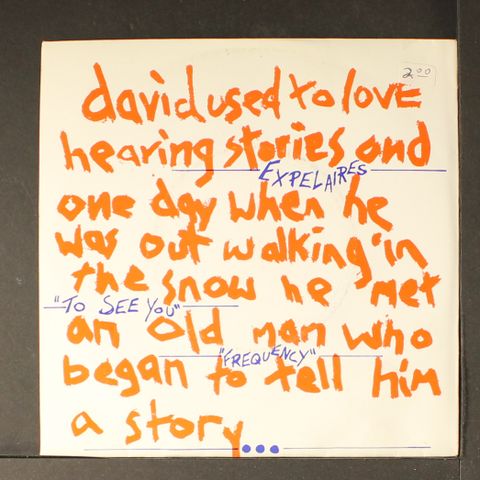 2.00
david used to love
hearing stories and
EXPELAIRES
one day when he
was out walking in
the snow he met
"TO SEE YOU"
an old man who
"FREQUENCY"
began to tell him
a story...